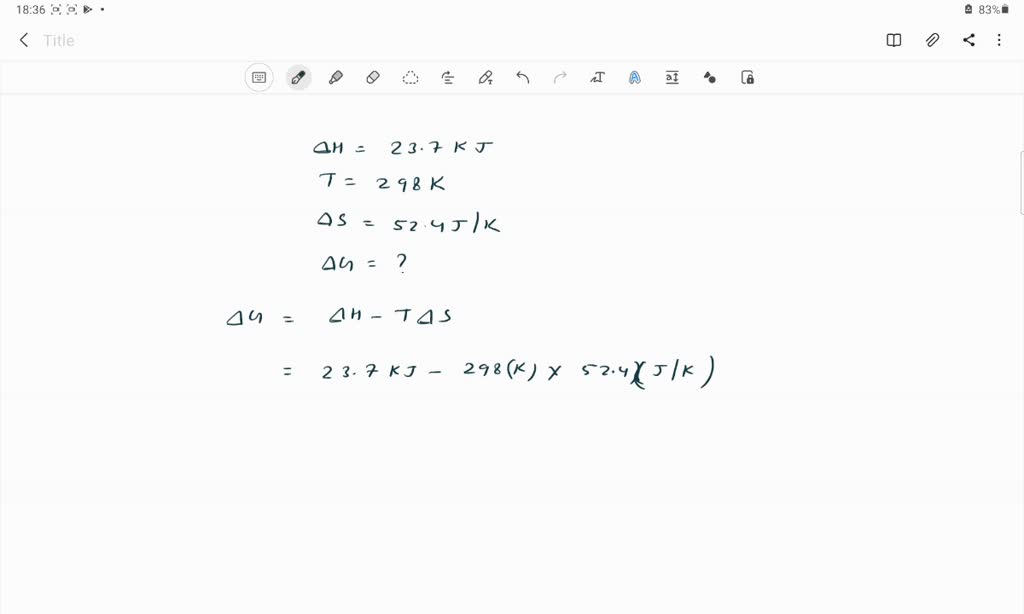 18:36 83%
Title
ΔH = 23.7 KJ
T = 298 K
ΔS = 52.4 J/K
ΔG = ?
ΔG = ΔH - TΔS
= 23.7 KJ - 298(K) × 52.4(J/K)